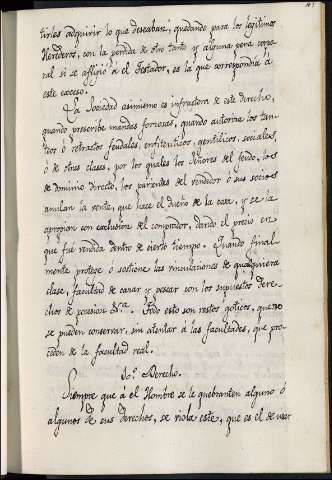 tirles adquirir lo que deseaban, quedando para los legitimos
Herederos, con la perdida de otro tanto y alguna pena corpo-
ral si se afligió á el Testador, es la que correspondia á
este exceso.
La Sociedad asimismo es infractora de este derecho,
quando prescribe mandas forzosas, quando autoriza los tan-
teos ó retractos feudales, enfiteuticos, gentilicos, sociales
ó de otras clases, por los quales los Señores del feudo, los
de dominio directo, los parientes del vendedor ó sus socios
anulan la venta, que hace el Dueño de la cosa, y se la
apropian con exclusion del comprador, dando el precio en
que fué vendida dentro de cierto tiempo. Quando final-
mente protege ó sostiene las vinculaciones de qualquiera
clase, facultad de cazar y pescar con los supuestos dere-
chos de posesion &ª. Todo esto son restos goticos, que no
se pueden conservar, sin atentar á las facultades, que pro-
ceden de la facultad real.
10.º Derecho.
Siempre que á el Hombre se le quebranten alguno ó
algunos de sus derechos, se viola este, que es el de usar